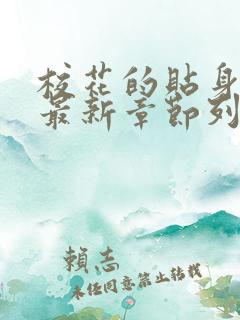 校花的貼身
最新章節列
賴志
未经同意禁止转载